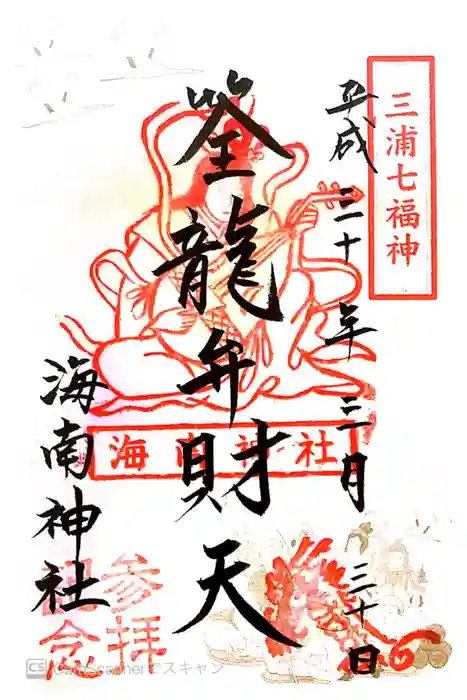 三浦七福神
平成三十年三月三十日
筌龍弁財天
海南神社
海南神社
参拝
記念
CS CamScannerでスキャン